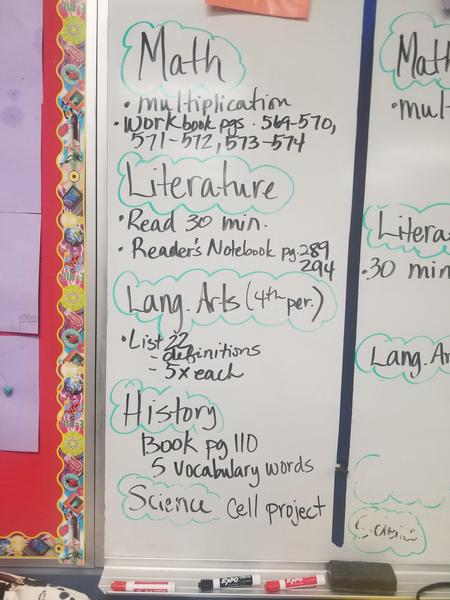 Math
• multiplication
• Workbook pgs. 569-570,
571-572, 573-574
Literature
• Read 30 min.
• Reader's Notebook pg. 289
294
Lang. Arts (4th per.)
• List 22
- definitions
- 5x each
History
Book pg 110
5 vocabulary words
Science Cell project
Math
• mul
Litera
• 30 min
Lang. Ar
EXPO
EXPO